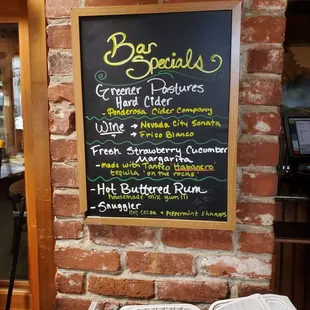 Bar
Specials
Greener Pastures
Hard Cider
- Ponderosa Cider Company
Wine → Nevada City Sonata
→ Frico Bianco
Fresh Strawberry Cucumber
Margarita
made with Tanteo Habanero
tequila "on the rocks"
- Hot Buttered Rum
housemade mix yum!!!
- Snuggler
Hot Cocoa & Peppermint Shnapps